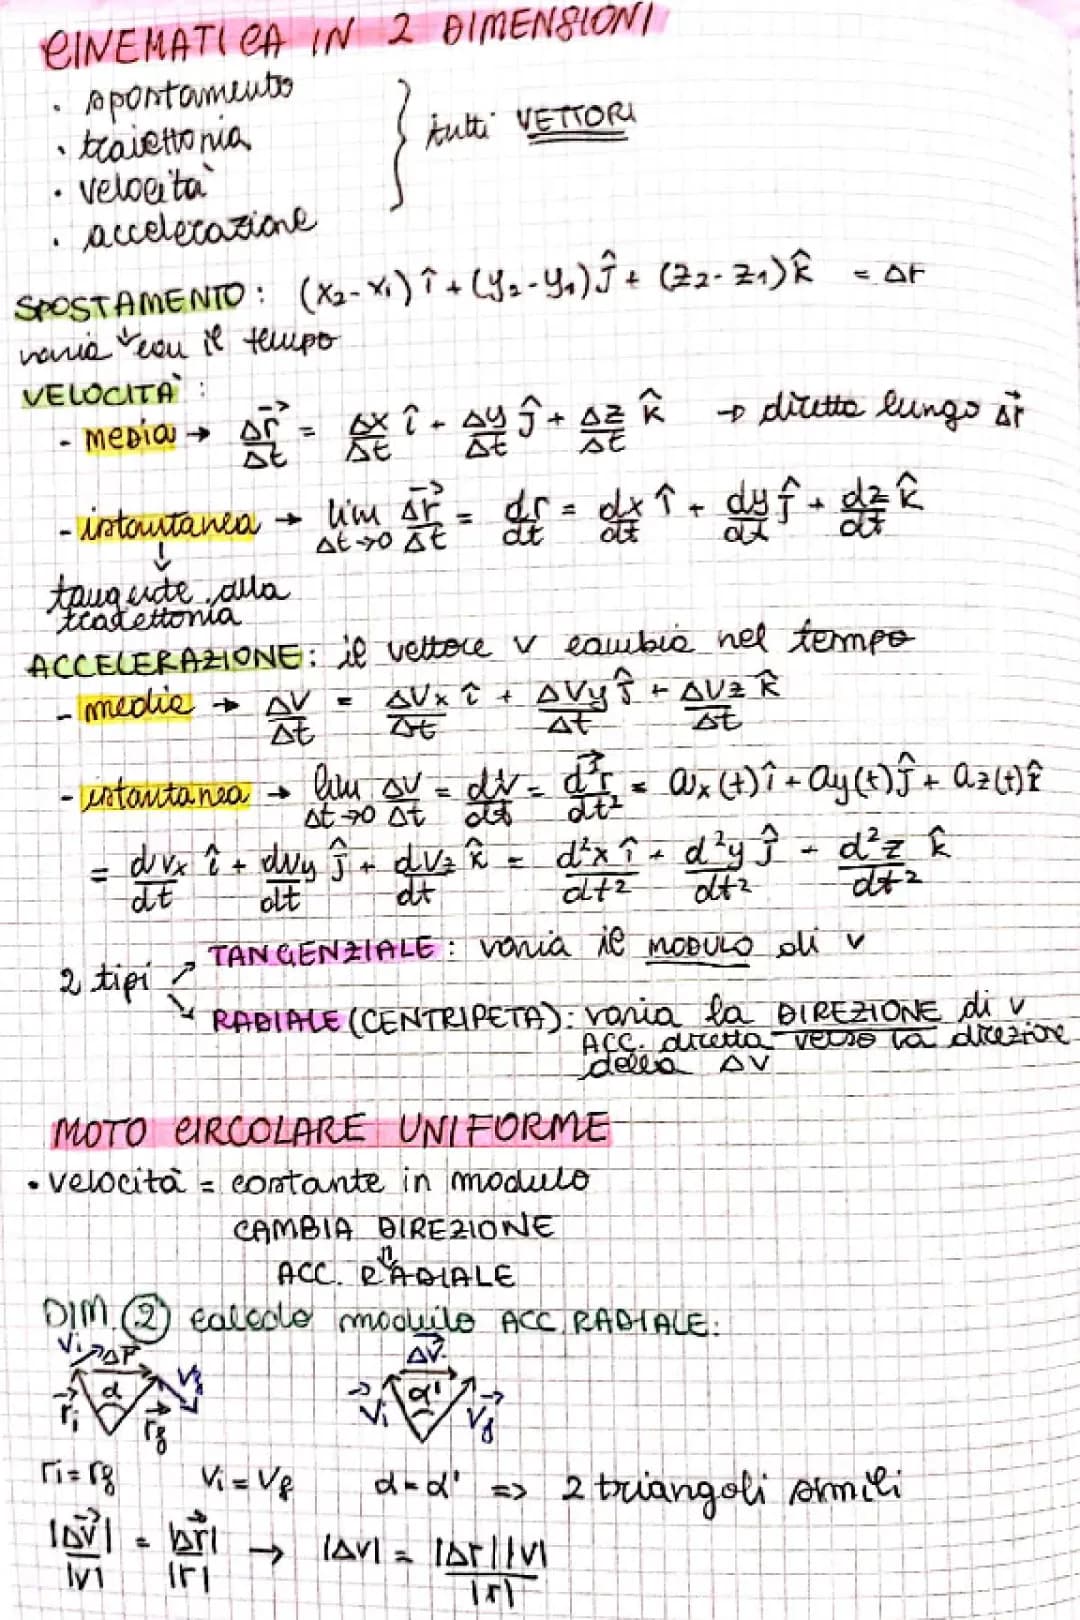 CINEMATICA IN 2 DIMENSIONI
· spostamento
· traiettoria
· velocità
· accelerazione
} tutti VETTORI
SPOSTAMENTO: (x₂-x₁) î + (y₂-y₁) ĵ + (z₂-z₁) k̂ = Δr
varia con il tempo
VELOCITÀ:
- MEDIA → Δr⃗/Δt = Δx/Δt î + Δy/Δt ĵ + Δz/Δt k̂ → diretta lungo Δr⃗
- istantanea → lim Δt→0 Δr⃗/Δt = dr/dt = dx/dt î + dy/dt ĵ + dz/dt k̂
↓
tangente alla
traiettoria
ACCELERAZIONE: il vettore v cambia nel tempo
- media → Δv/Δt = Δvx/Δt î + Δvy/Δt ĵ + Δvz/Δt k̂
- istantanea → lim Δt→0 Δv/Δt = dv/dt = d²r⃗/dt² = ax(t) î + ay(t) ĵ + az(t) k̂
= dvx/dt î + dvy/dt ĵ + dvz/dt k̂ = d²x/dt² î + d²y/dt² ĵ + d²z/dt² k̂
2 tipi
↗ TANGENZIALE: varia il MODULO di v
↘ RADIALE (CENTRIPETA): varia la DIREZIONE di v
ACC. diretta verso la direzione
della Δv
MOTO CIRCOLARE UNIFORME
· velocità = costante in modulo
CAMBIA DIREZIONE
⇓
ACC. RADIALE
DIM. ② calcolo modulo ACC. RADIALE:
vi Δr⃗ α vf r⃗i r⃗f
Δv⃗ α' v⃗i v⃗f
ri = rf vi = vf α = α' => 2 triangoli simili
|Δv⃗|/|v| = |Δr⃗|/|r| → |Δv| = |Δr||v|/|r|